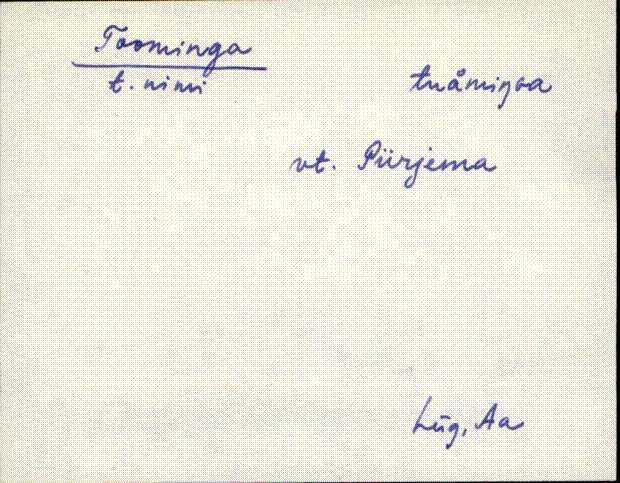 Toominga
t. nimi
tuåmiŋga
vt. Piirjema
Lüg, Aa